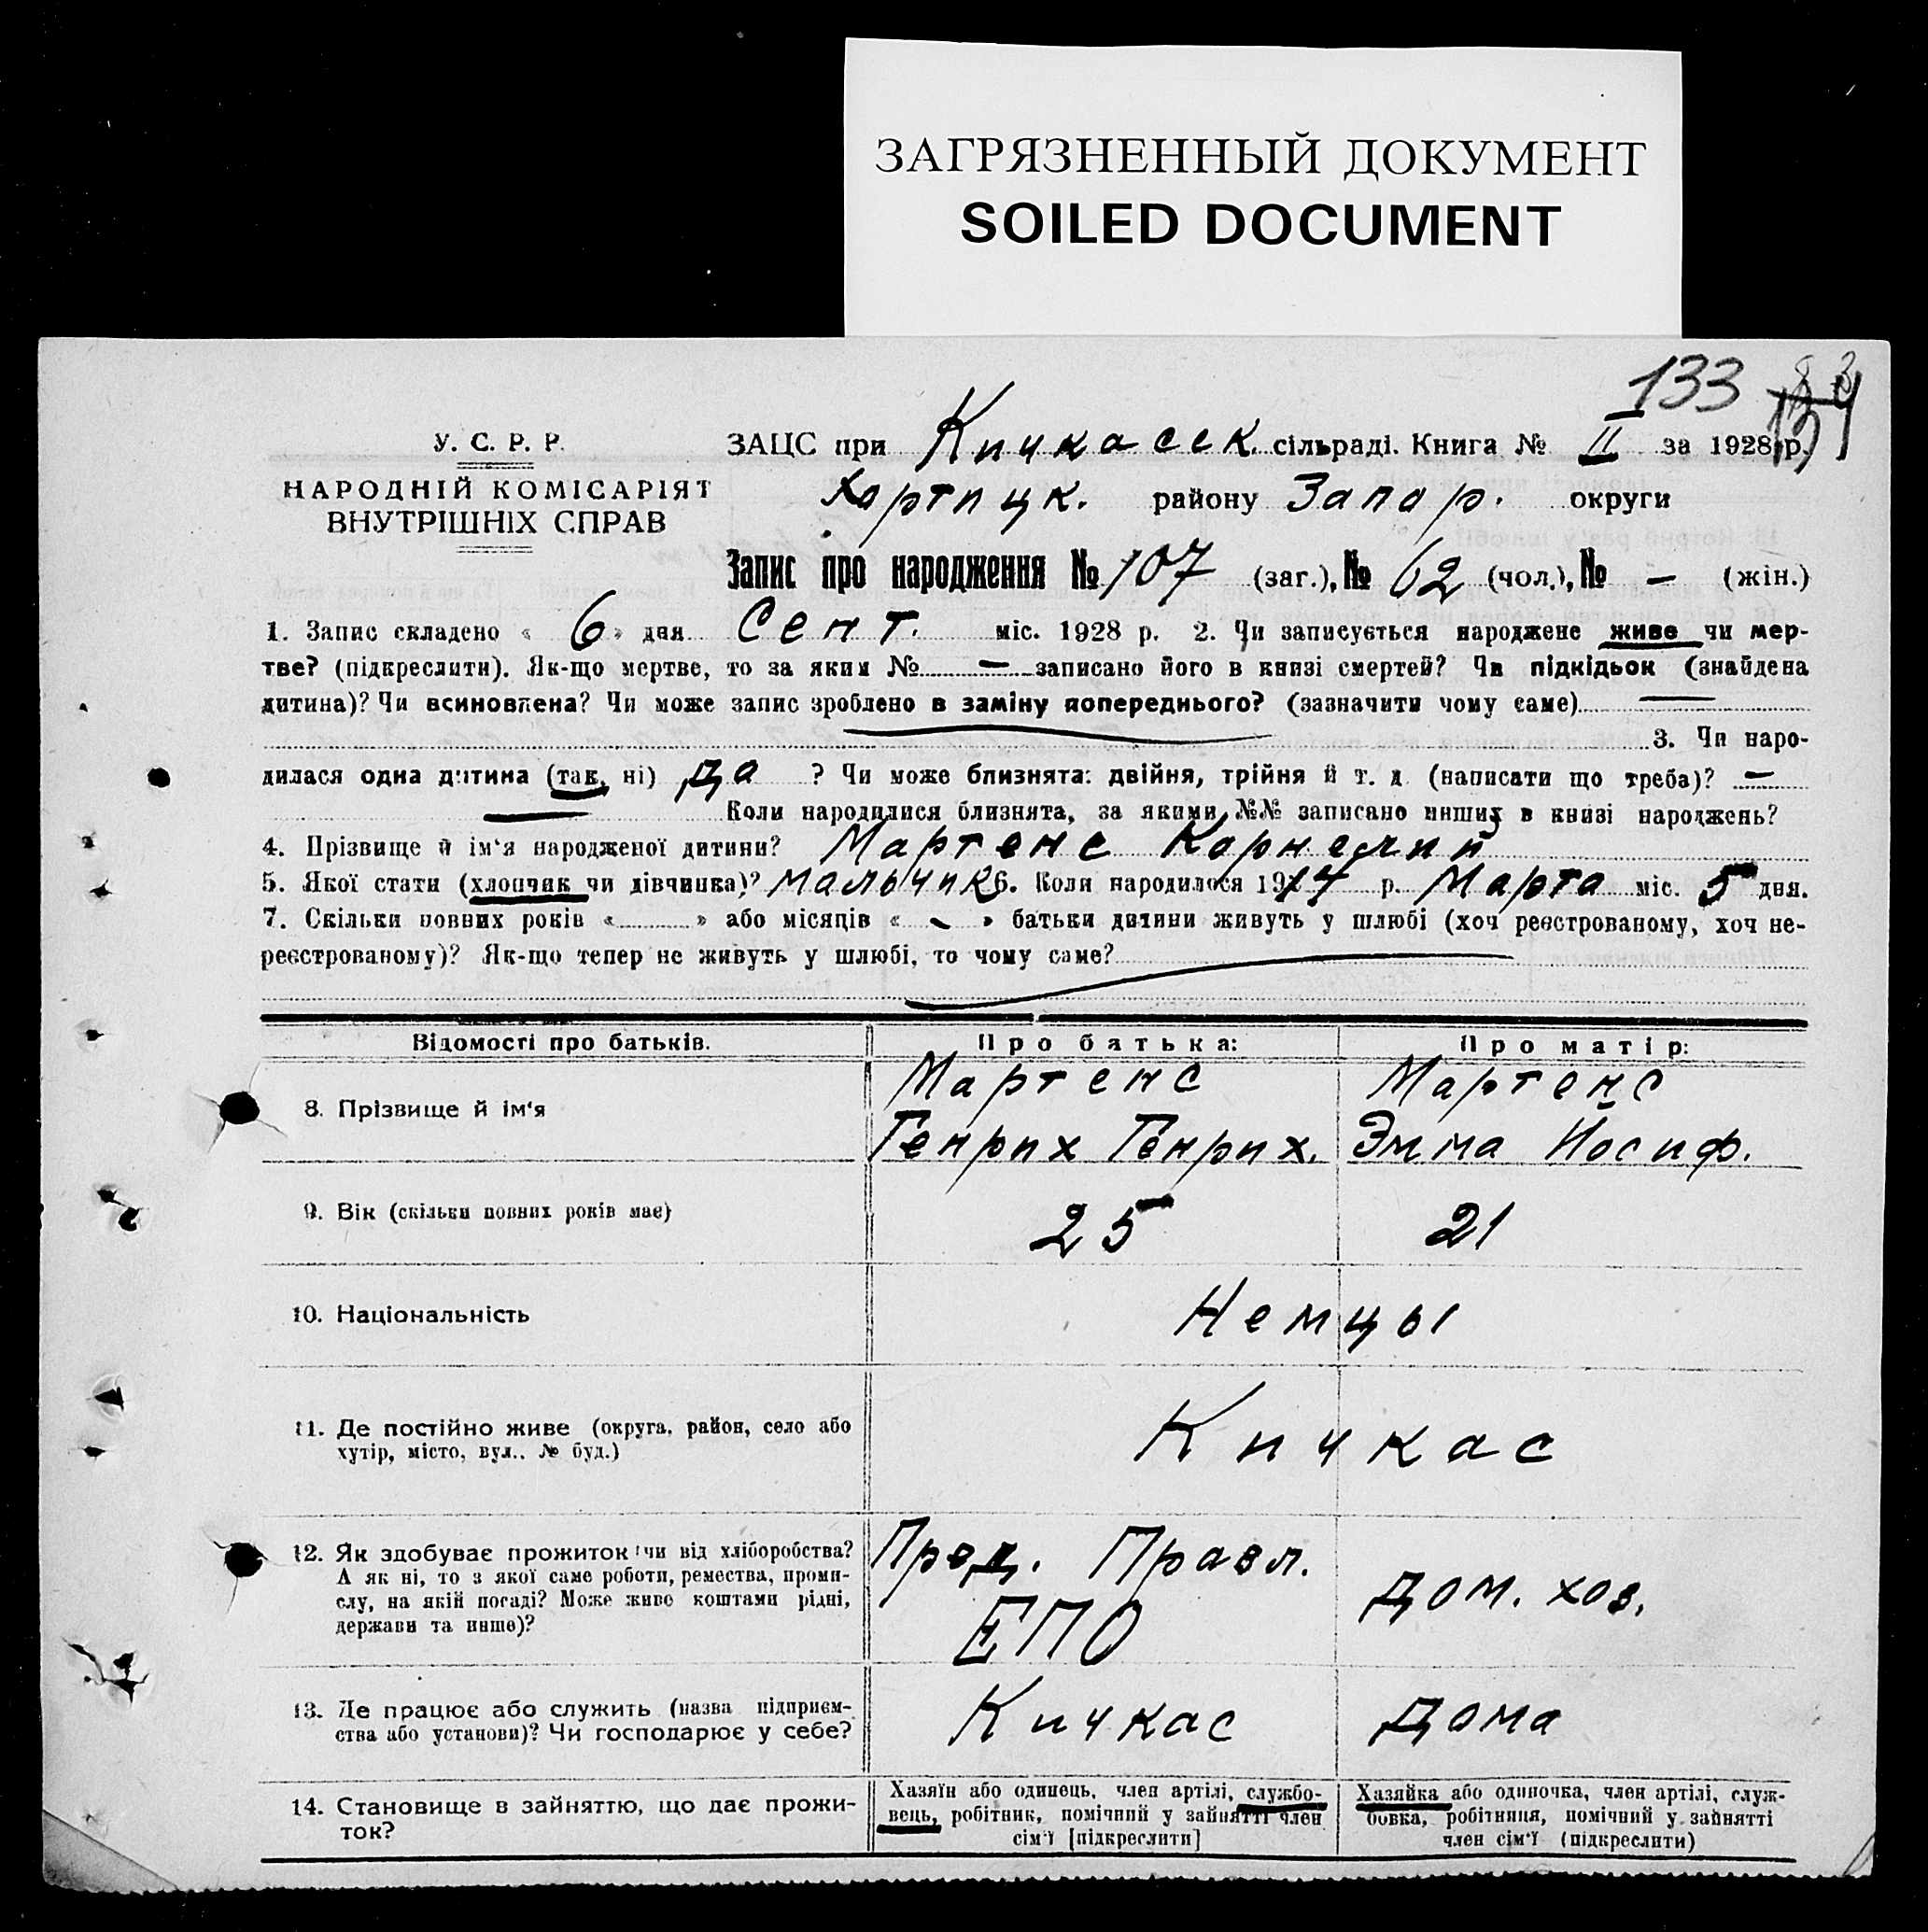 ЗАГРЯЗНЕННЫЙ ДОКУМЕНТ
SOILED DOCUMENT
133
У. С. Р. Р.
НАРОДНІЙ КОМІСАРІЯТ
ВНУТРІШНІХ СПРАВ
ЗАЦС при Кичкасск. сільраді. Книга № II за 1928 р.
Хортицк. району Запор. округи
Запис про народження № 107 (заг.), № 62 (чол.), № — (жін.)
1. Запис складено « 6 » дня Сент. міс. 1928 р. 2. Чи записується народжене живе чи мер-
тве? (підкреслити). Як-що мертве, то за яким № — записано його в книзі смертей? Чи підкідьок (знайдена
дитина)? Чи всиновлена? Чи може запис зроблено в заміну попереднього? (зазначити чому саме) —
3. Чи наро-
дилася одна дитина (так, ні) Да ? Чи може близнята: двійня, трійня й т. д. (написати що треба)? —
— Коли народилися близнята, за якими №№ записано инших в книзі народжень?
4. Прізвище й ім'я народженої дитини? Мартенс Корнелий
5. Якої стати (хлопчик чи дівчинка)? Мальчик 6. Коли народилося 19 р. Марта міс. 5 дня.
7. Скільки повних років « » або місяців « - » батьки дитини живуть у шлюбі (хоч реєстрованому, хоч не-
реєстрованому)? Як-що тепер не живуть у шлюбі, то чому саме?
Відомості про батьків. Про батька: Про матір:
8. Прізвище й ім'я Мартенс Генрих Генрих. Мартенс Эмма Йосиф.
9. Вік (скільки повних років має) 25 21
10. Національність Немцы
11. Де постійно живе (округа, район, село або
хутір, місто, вул., № буд.) Кичкас
12. Як здобуває прожиток: чи від хліборобства?
А як ні, то з якої саме роботи, ремества, проми-
слу, на якій посаді? Може живе коштами рідні,
держави та инше)?
Пред. Правл.
ЕПО
Дом. хоз.
13. Де працює або служить (назва підприєм-
ства або установи)? Чи господарює у себе?
Кичкас Дома
14. Становище в зайняттю, що дає прожи-
ток?
Хазяїн або одинець, член артілі, службо-
вець, робітник, помічний у зайнятті член
сім'ї [підкреслити]
Хазяйка або одиночка, член артілі, служ-
бовка, робітниця, помічний у зайнятті
член сім'ї (підкреслити)